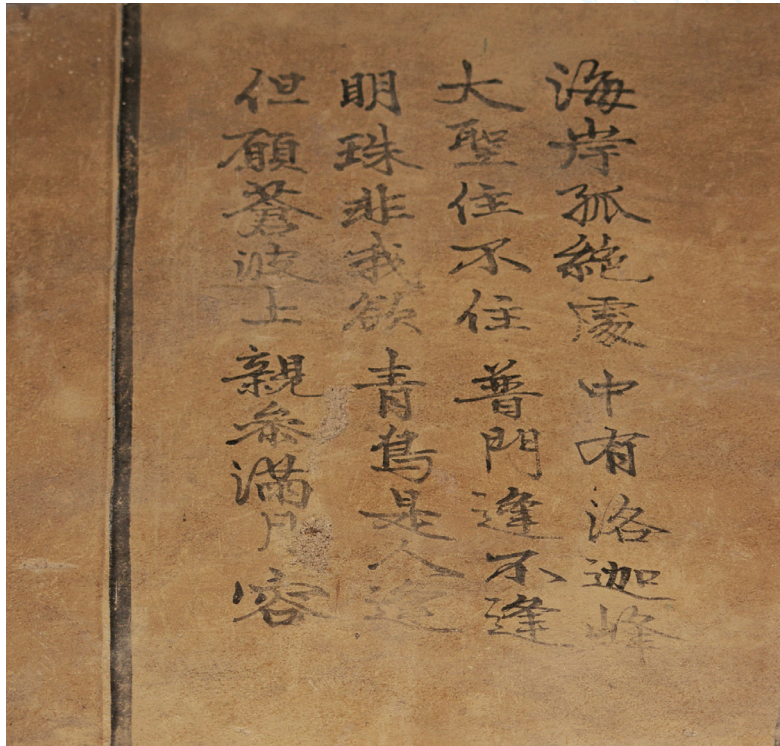 海岸孤絶處中有洛迦峰
大聖住不住普門逢不逢
明珠非我欲青鳥是人逢
但願蒼波上親叅滿月容